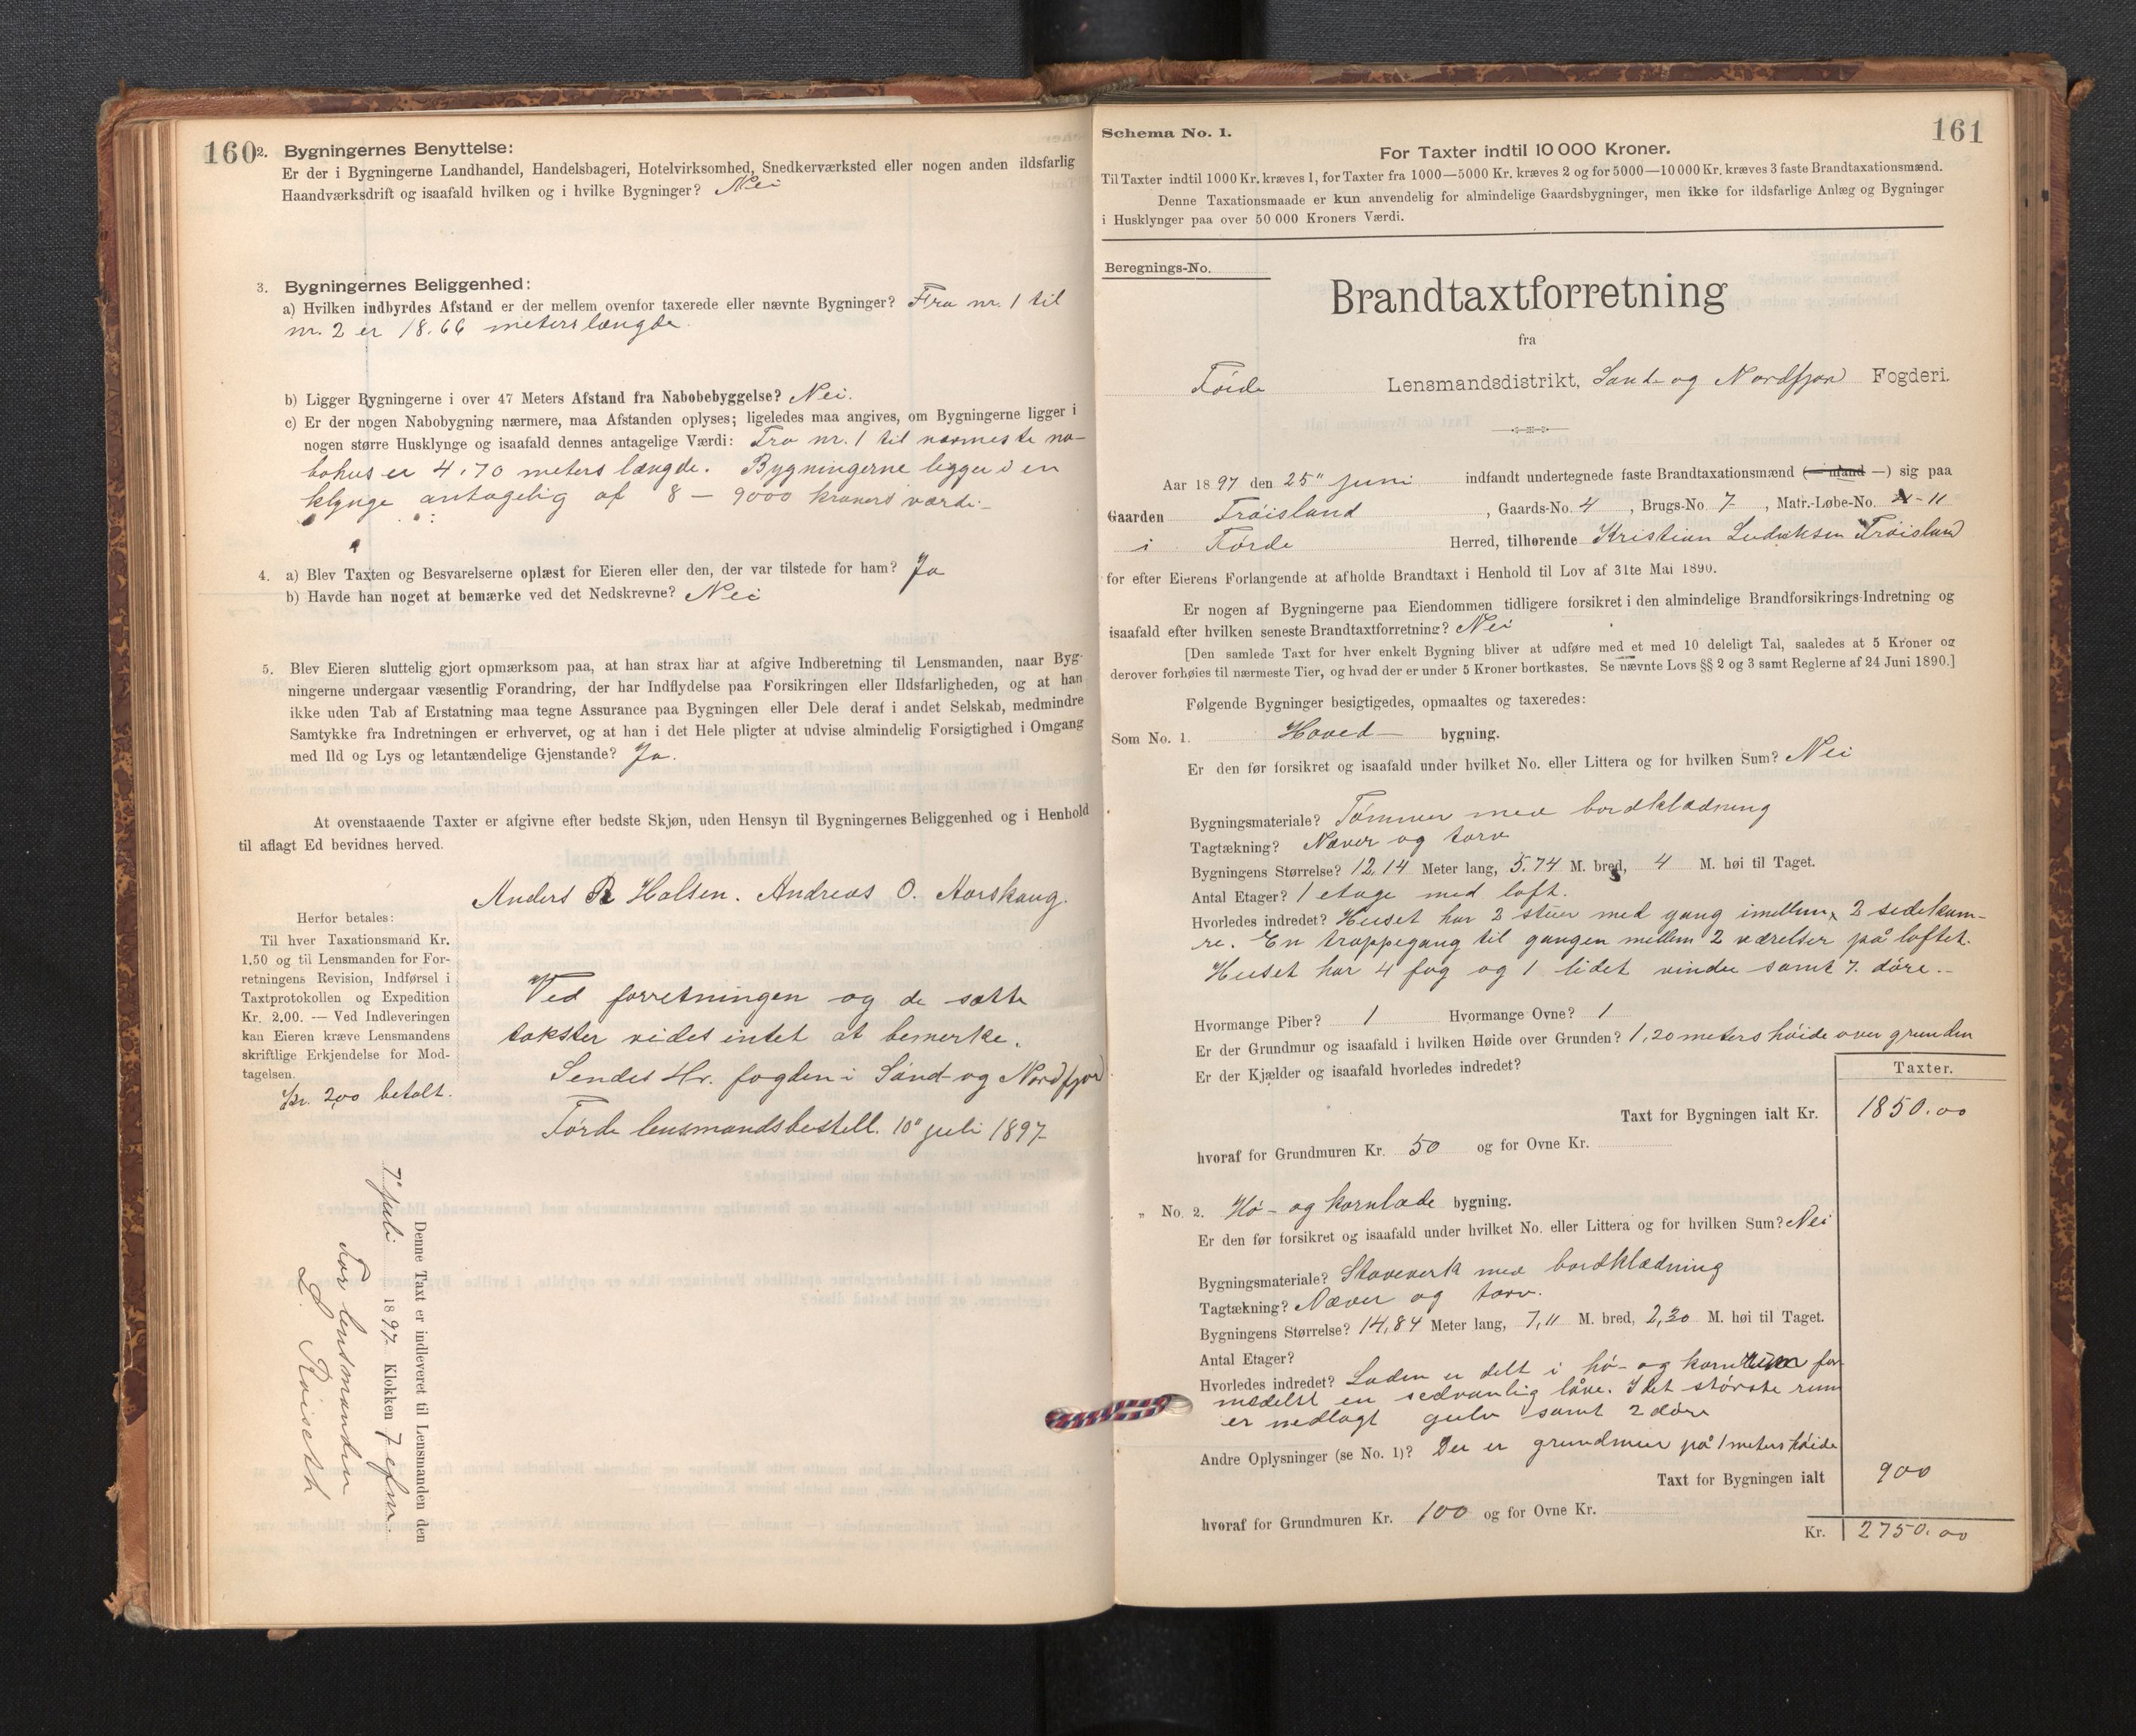 160
2. Bygningernes Benyttelse:
Er der i Bygningerne Landhandel, Handelsbageri, Hotelvirksomhed, Snedkerværksted eller nogen anden ildsfarlig
Haandværksdrift og isaafald hvilken og i hvilke Bygninger? Nei
3. Bygningernes Beliggenhed:
a) Hvilken indbyrdes Afstand er der mellem ovenfor taxerede eller nævnte Bygninger? Fra nr. 1 til
nr. 2 er 18.66 meters længde.
b) Ligger Bygningerne i over 47 Meters Afstand fra Nabobebyggelse? Nei.
c) Er der nogen Nabobygning nærmere, maa Afstanden oplyses; ligeledes maa angives, om Bygningerne ligger i
nogen større Husklynge og isaafald dennes antagelige Værdi: Fra nr. 1 til nærmeste na-
bohus er 4.70 meters længde. Bygningerne ligger i en
klynge antagelig af 8 – 9000 kroners værdi –
4. a) Blev Taxten og Besvarelserne oplæst for Eieren eller den, der var tilstede for ham? Ja
b) Havde han noget at bemærke ved det Nedskrevne? Nei
5. Blev Eieren sluttelig gjort opmærksom paa, at han strax har at afgive Indberetning til Lensmanden, naar Byg-
ningerne undergaar væsentlig Forandring, der har Indflydelse paa Forsikringen eller Ildsfarligheden, og at han
ikke uden Tab af Erstatning maa tegne Assurance paa Bygningen eller Dele deraf i andet Selskab, medmindre
Samtykke fra Indretningen er erhvervet, og at han i det Hele pligter at udvise almindelig Forsigtighed i Omgang
med Ild og Lys og letantændelige Gjenstande? Ja.
At ovenstaaende Taxter er afgivne efter bedste Skjøn, uden Hensyn til Bygningernes Beliggenhed og i Henhold
til aflagt Ed bevidnes herved.
Anders R Halsen. Andreas O. Aarskaug.
Herfor betales:
Til hver Taxationsmand Kr.
1,50 og til Lensmanden for For-
retningens Revision, Indførsel i
Taxtprotokollen og Expedition
Kr. 2,00. — Ved Indleveringen
kan Eieren kræve Lensmandens
skriftlige Erkjendelse for Mod-
tagelsen.
Kr. 2,00 betalt.
Ved forretningen og de satte
takster vides intet at bemerke.
Sendes Hr. fogden i Sønd- og Nordfjord
Førde lensmandsbestill. 10" juli 1897
Denne Taxt er indleveret til Lensmanden den
7" juli 1897 Klokken 7 efm.
For lensmanden
L. Røiseth
161
Schema No. 1.
For Taxter indtil 10 000 Kroner.
Til Taxter indtil 1000 Kr. kræves 1, for Taxter fra 1000—5000 Kr. kræves 2 og for 5000—10 000 Kr. kræves 3 faste Brandtaxationsmænd.
Denne Taxationsmaade er kun anvendelig for almindelige Gaardsbygninger, men ikke for ildsfarlige Anlæg og Bygninger
i Husklynger paa over 50 000 Kroners Værdi.
Beregnings-No.
Brandtaxtforretning
fra
Førde Lensmandsdistrikt, Sønd- og Nordfjord Fogderi.
Aar 1897 den 25" juni indfandt undertegnede faste Brandtaxationsmænd (— mand —) sig paa
Gaarden Frøisland, Gaards-No. 4, Brugs-No. 7, Matr.-Løbe-No. 11
i Førde Herred, tilhørende Kristian Ludviksen Frøisland
for efter Eierens Forlangende at afholde Brandtaxt i Henhold til Lov af 31te Mai 1890.
Er nogen af Bygningerne paa Eiendommen tidligere forsikret i den almindelige Brandforsikrings-Indretning og
isaafald efter hvilken seneste Brandtaxtforretning? Nei
[Den samlede Taxt for hver enkelt Bygning bliver at udføre med et med 10 deleligt Tal, saaledes at 5 Kroner og
derover forhøies til nærmeste Tier, og hvad der er under 5 Kroner bortkastes. Se nævnte Lovs §§ 2 og 3 samt Reglerne af 24 Juni 1890.]
Følgende Bygninger besigtigedes, opmaaltes og taxeredes:
Som No. 1. Hoved- bygning.
Er den før forsikret og isaafald under hvilket No. eller Littera og for hvilken Sum? Nei
Bygningsmateriale? Tømmer med bordklædning
Tagtækning? Næver og torv
Bygningens Størrelse? 12,14 Meter lang, 5.74 M. bred, 4 M. høi til Taget.
Antal Etager? 1 etage med loft.
Hvorledes indredet? Huset har 2 stuer med gang imellem, 2 sedelkam-
re. En trappegang til gangen mellem 2 værelser på loftet.
Huset har 4 fag og 1 lidet vindu samt 7. døre. –
Hvormange Piber? 1 Hvormange Ovne? 1
Er der Grundmur og isaafald i hvilken Høide over Grunden? 1,20 meters høide over grunden
Er der Kjælder og isaafald hvorledes indredet?
Taxter.
Taxt for Bygningen ialt Kr. 1850.00
hvoraf for Grundmuren Kr. 50 og for Ovne Kr.
" No. 2. Hø- og kornlade bygning.
Er den før forsikret og isaafald under hvilket No. eller Littera og for hvilken Sum? Nei
Bygningsmateriale? Staveverk med bordklædning
Tagtækning? Næver og torv.
Bygningens Størrelse? 14,84 Meter lang, 7,11 M. bred, 2,20 M. høi til Taget.
Antal Etager?
Hvorledes indredet? Laden er delt i hø- og kornrum for-
medelst en sedvanlig låve. I det største rum
er nedlagt gulv samt 2 døre
Andre Oplysninger (se No. 1)? Der er grundmur på 1 meters høide
Taxt for Bygningen ialt 900
hvoraf for Grundmuren Kr. 100 og for Ovne Kr.
Kr. 2750.00